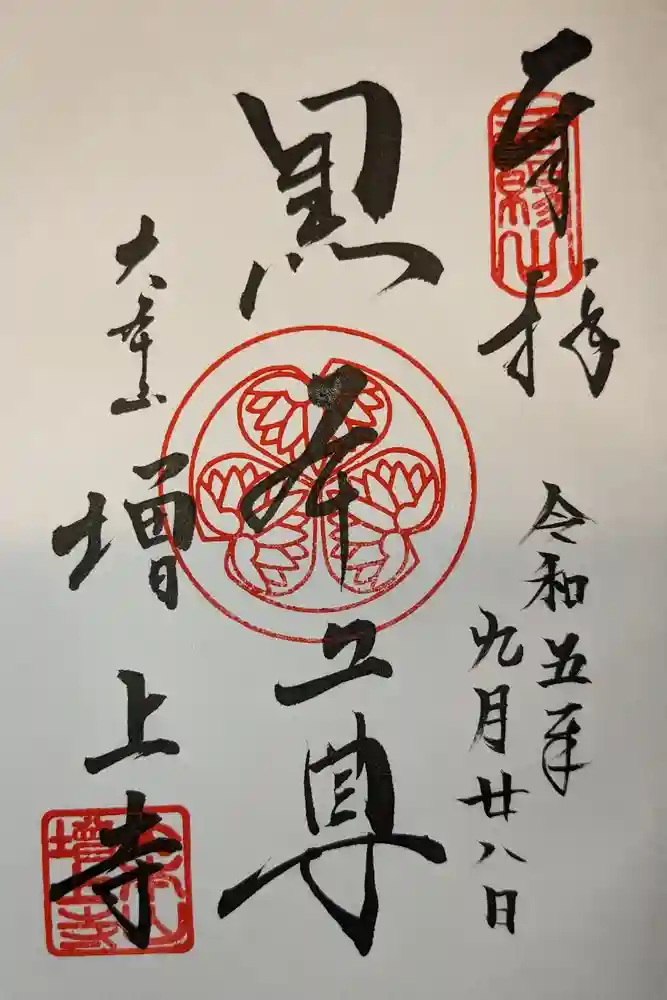 奉拝
三縁山
令和五年
九月廿八日
黒本尊
大本山
増上寺